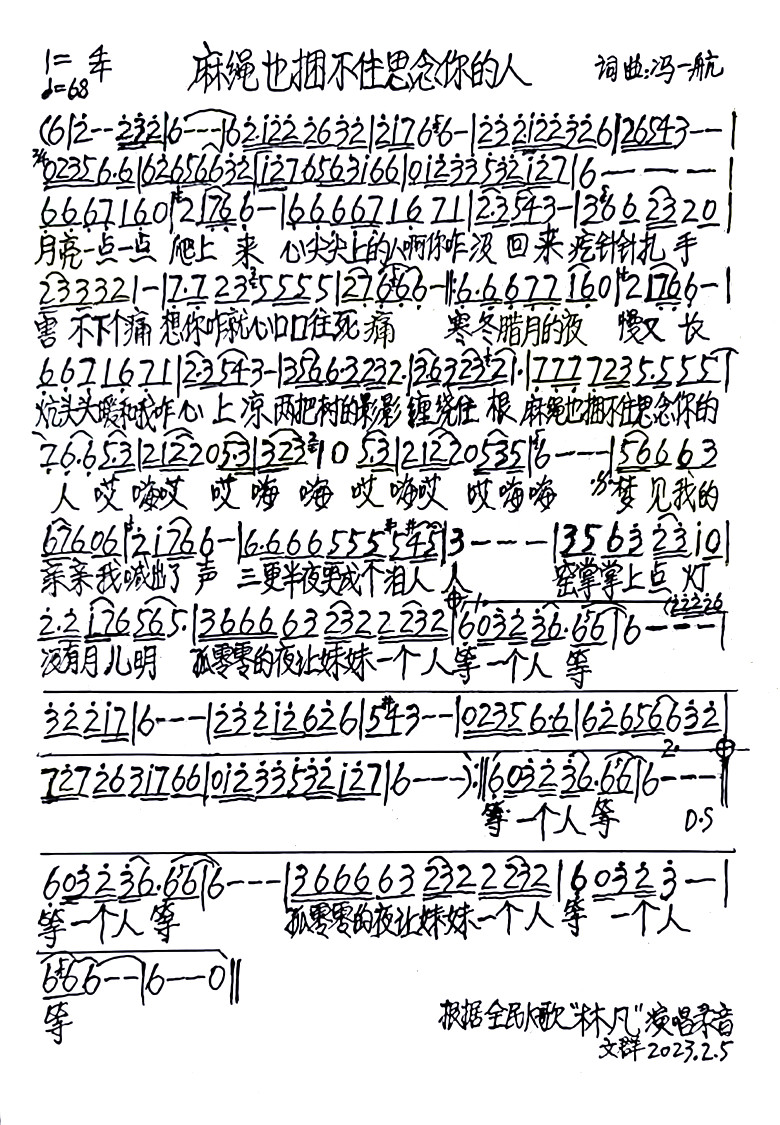 1= 4/4 麻绳也捆不住思念你的人 词曲:冯一航
♩=68
(6|2--232|6---|62122 2632|2176 6-|232122326|26543--|
3/4 02356·6|626566 32|1276563166|01233532127|6----|
6667160|21766-|6666716 71|23543-|3662320|
月亮一点一点 爬上 来 心尖尖上的人啊你咋没 回 来 疙针针扎 手
2333321-|7·7235555|27666-|:6·6677160|21766-|
害 不下个痛 想你咋就心口口往死 痛 寒冬腊月的夜 慢又 长
6671671|23543-|35663232·|3632321·|77772355·55|
炕头头暖和我咋心 上 凉 两把树的影影 缠绕住 根 麻绳也捆不住思念你的
76·653|2122053|323210 53|21220535|6---|56663
人 哎 嗨哎 哎 嗨 嗨 哎 嗨哎 哎嗨嗨 梦 见我的
67606|21766-|6·66655554#45|3---|35632310|
亲亲我喊出了 声 三更半夜哭成个泪人 人 窑掌掌上点 灯
2·2176565·|36666323222232|6032 36·66|6---
没有月儿明 孤零零的夜让妹妹一个 人等 一个人 等
32217|6---|232126 26|5#43--|02356·6|6265 6632|
7272631766|01233532127|6----):‖6032 36·66|6---‖
等 一个人 等 D.S
6032 36·66|6---|36666323222232|6 032 3--|
等 一个人 等 孤零零的夜让妹妹一个 人 等 一个人
666--|6--0‖
等
根据全民K歌"林凡"演唱录音
文群2023.2.5